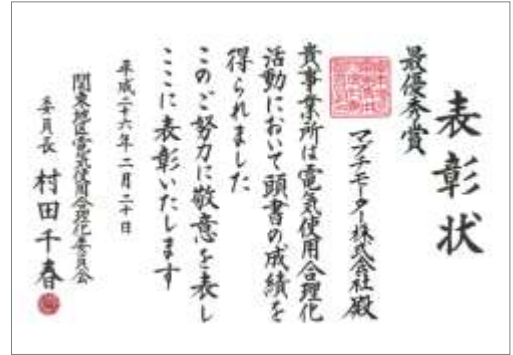 表彰状
最優秀賞
マブチモーター株式会社殿
貴事業所は電気使用合理化
活動において頭書の成績を
得られました
このご努力に敬意を表し
ここに表彰いたします
平成二十六年二月二十日
関東地区電気使用合理化委員会
委員長 村田千春